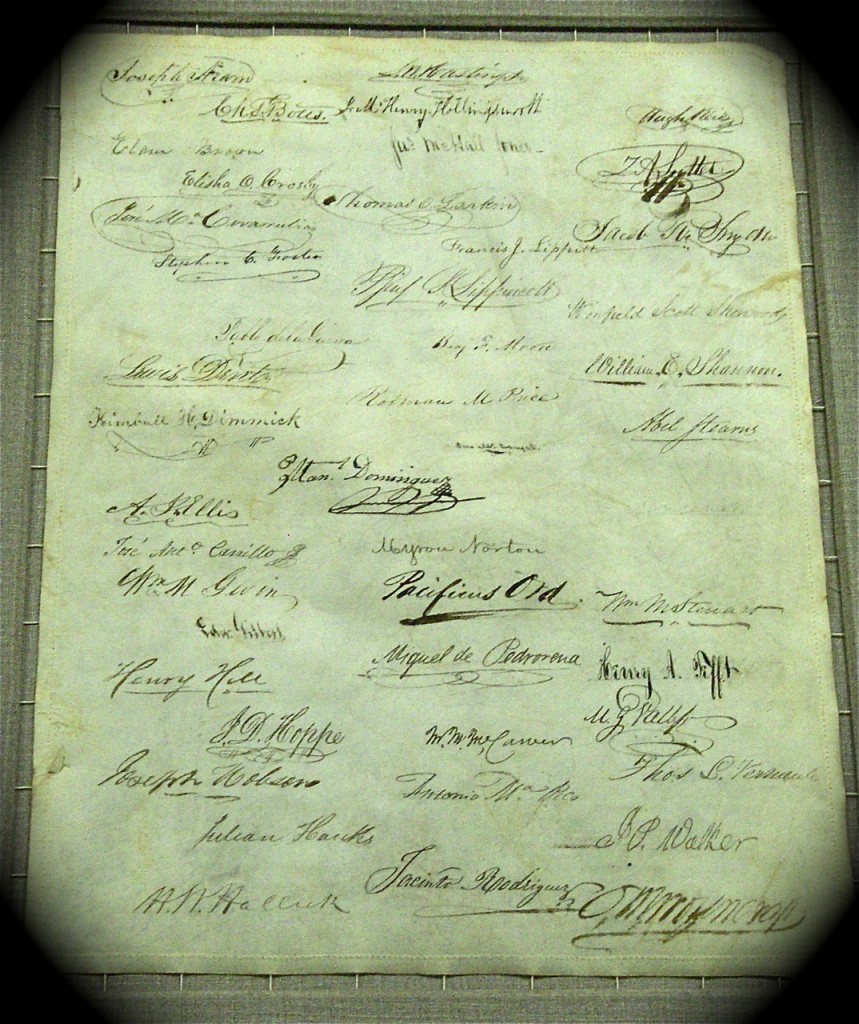 Joseph Aram
Chs. T. Botts.
Elam Brown
Elisha O. Crosby
José Ma. Covarrubias
Stephen C. Foster
Pablo de la Guerra
Lewis Dent
Kimball H. Dimmick
Man.l Dominguez
A. J. Ellis
José Anto. Carrillo
Wm M Gwin
Edw. Gilbert
Henry Hill
J. D. Hoppe
Joseph Hobson
Julian Hanks
H. W. Halleck
L. W. Hastings
J. McHenry Hollingsworth
Jas McHall Jones
Thomas O. Larkin
Francis J. Lippitt
Benj S. Lippincott
Benj F. Moore
Rodman M Price
Myron Norton
Pacificus Ord.
Miguel de Pedrorena
M. M. McCarver
Antonio Ma Pico
Jacinto Rodriguez
Hugh Reid
J A Sutter
Jacob R. Snyder
Winfield Scott Sherwood
William E. Shannon.
Abel Stearns
Wm M Steuart
Henry A. Tefft
M. G. Vallejo
Thos L. Vermeule
J. P. Walker
O. M. Wozencraft